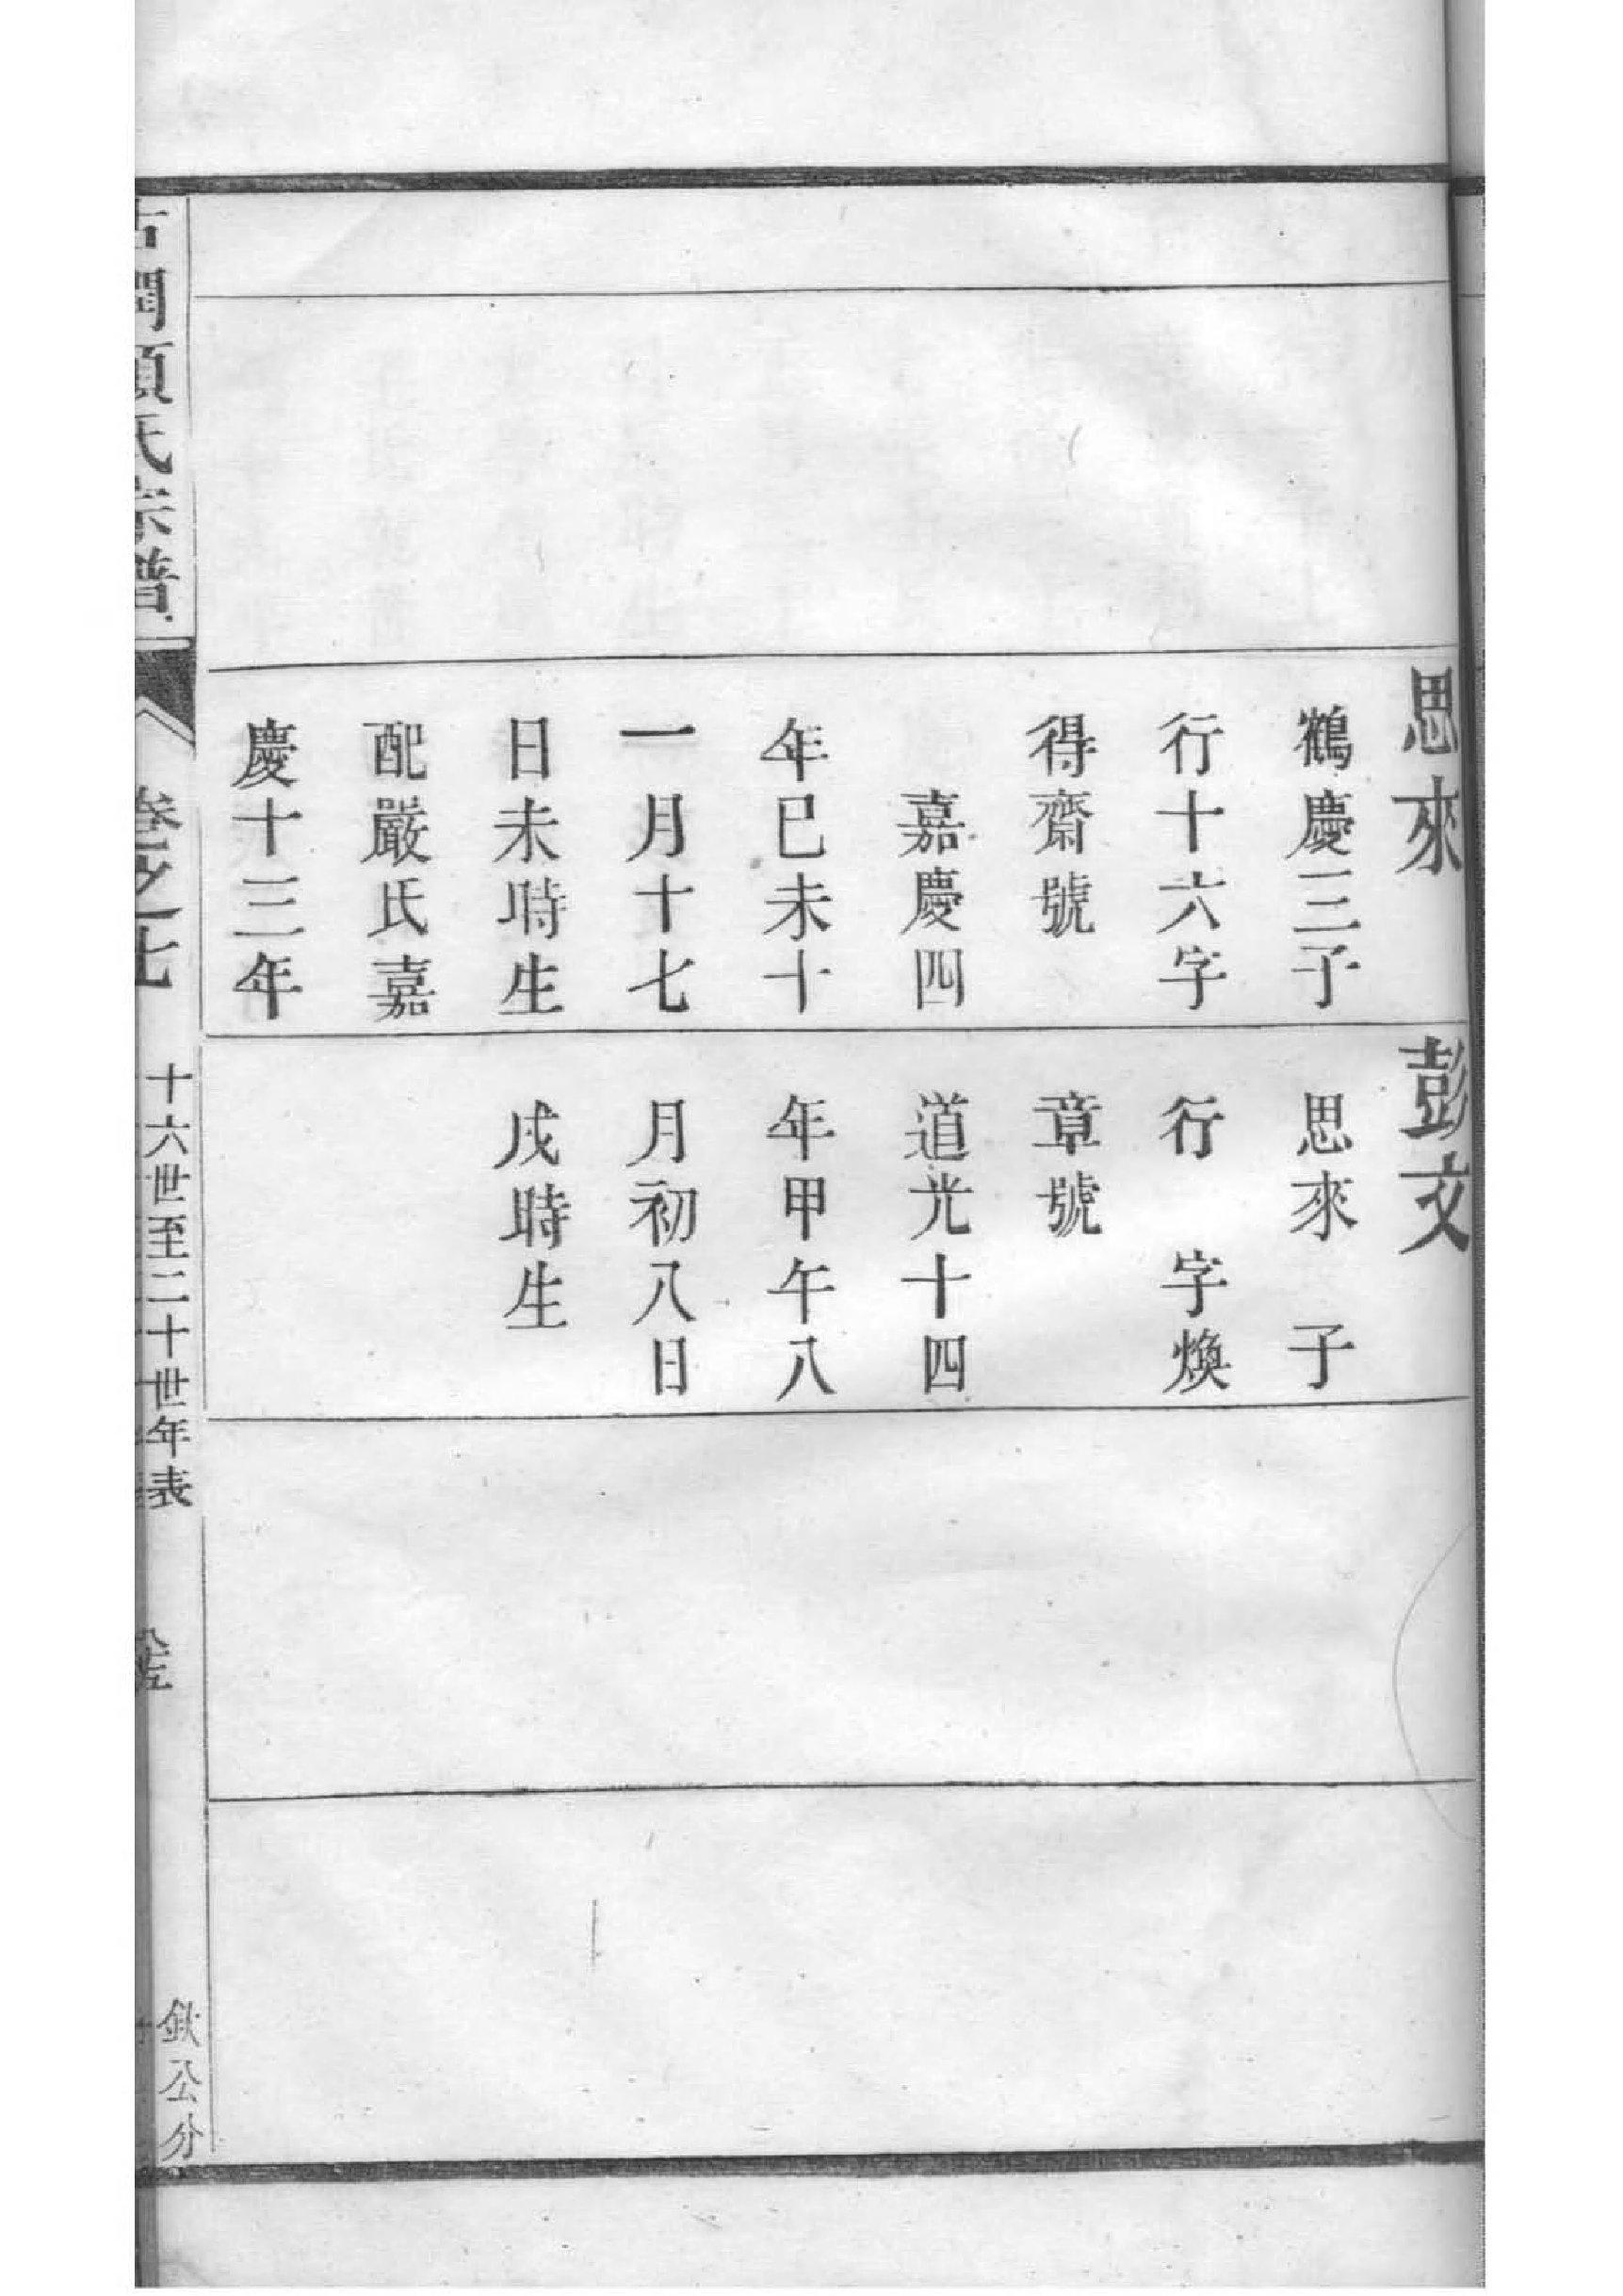 思來
鶴慶三子
行十六字
得齋號
嘉慶四
年己未十
一月十七
日未時生
配嚴氏嘉
慶十三年
彭文
思來　子
行　字煥
章號
道光十四
年甲午八
月初八日
戌時生
潤
氏宗譜
卷之七
十六世至二十世年表
公分